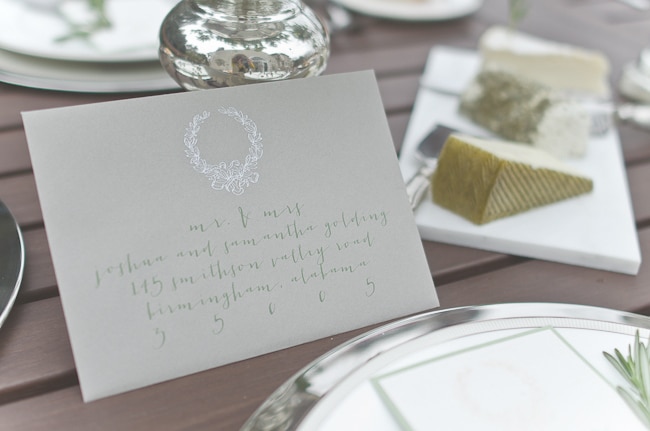 mr. & mrs
joshua and samantha golding
145 smithson valley road
birmingham, alabama
55005